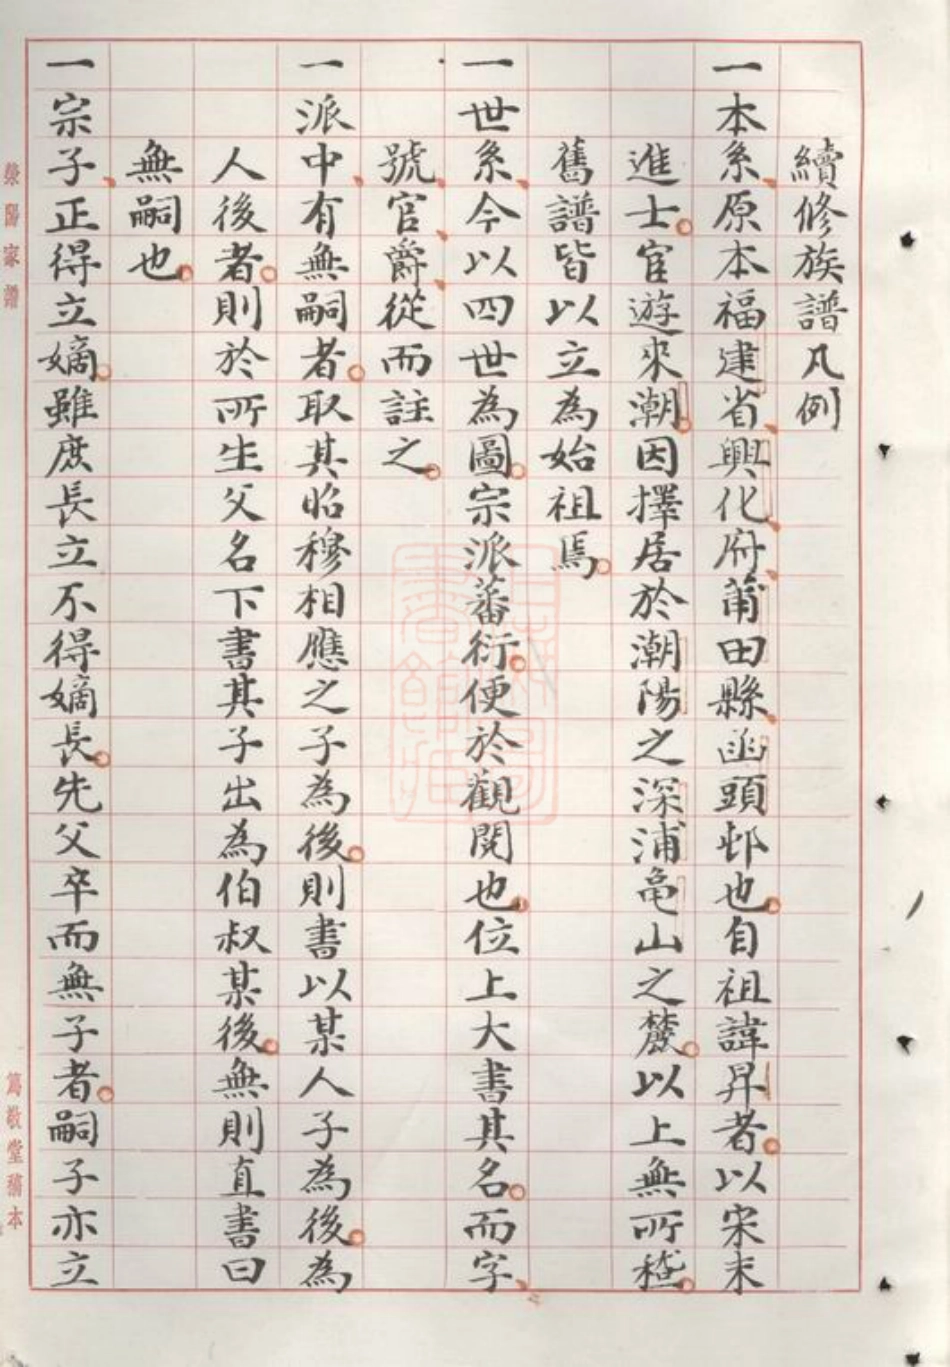 續修族譜凡例
一本系、原本福建省、興化、府、莆田縣、函頭邨也。自祖諱昇者。以宋末
進士。宦遊來潮。因擇居於潮陽之深浦黽山之麓。以上無所稽。
舊譜皆以立為始祖焉。
一世系、今以四世為圖。宗派蕃衍。便於觀閱也。位上大書其名。而字、
號、官、爵、從而註之。
一派中、有無嗣者。取其昭穆相應之子為後。則書以某人子為後。為
人後者。則於所生父名下書其子出為伯叔某後。無則直書曰
無嗣也。
一宗子、正得立嫡。雖庶長立不得嫡長。先父卒而無子者。嗣子亦立
滎陽家譜
篤敬堂稿本